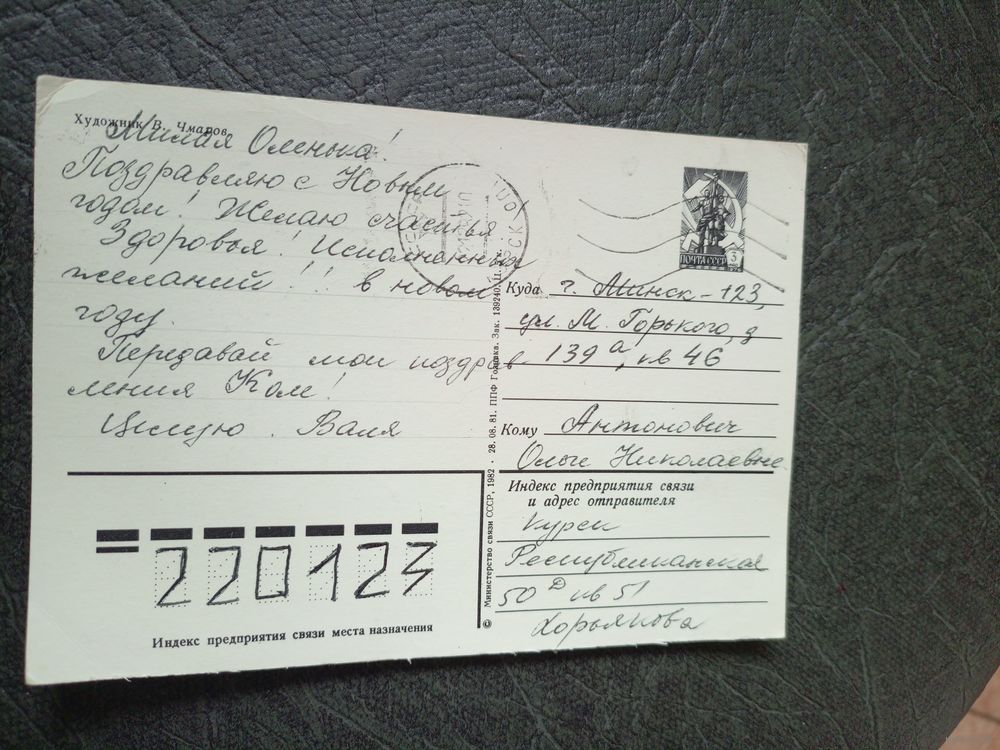 Художник В. Чмаров
Милая Оленька!
Поздравляю с Новым
годом! Желаю счастья
Здоровья! Исполненных
желаний!!! в новом
году.
Передавай мои поздрав
ления Коле!
Целую. Валя
ПОЧТА СССР
3
1976
Куда г. Минск-123,
ул. М. Горького, д
139а, кв 46
Кому Антонович
Ольге Николаевне
Индекс предприятия связи
и адрес отправителя
Курск
Республиканская
50Д кв 51
Хорьякова
© Министерство связи СССР, 1982 · 28.08.81. ППФ Гознака. Зак. 139240. Ц. 4 к.
220123
Индекс предприятия связи места назначения